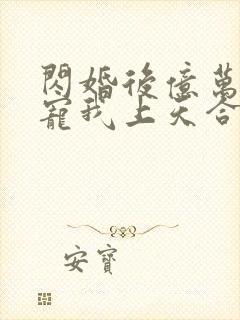 閃婚後億萬
寵我上天合
安寶